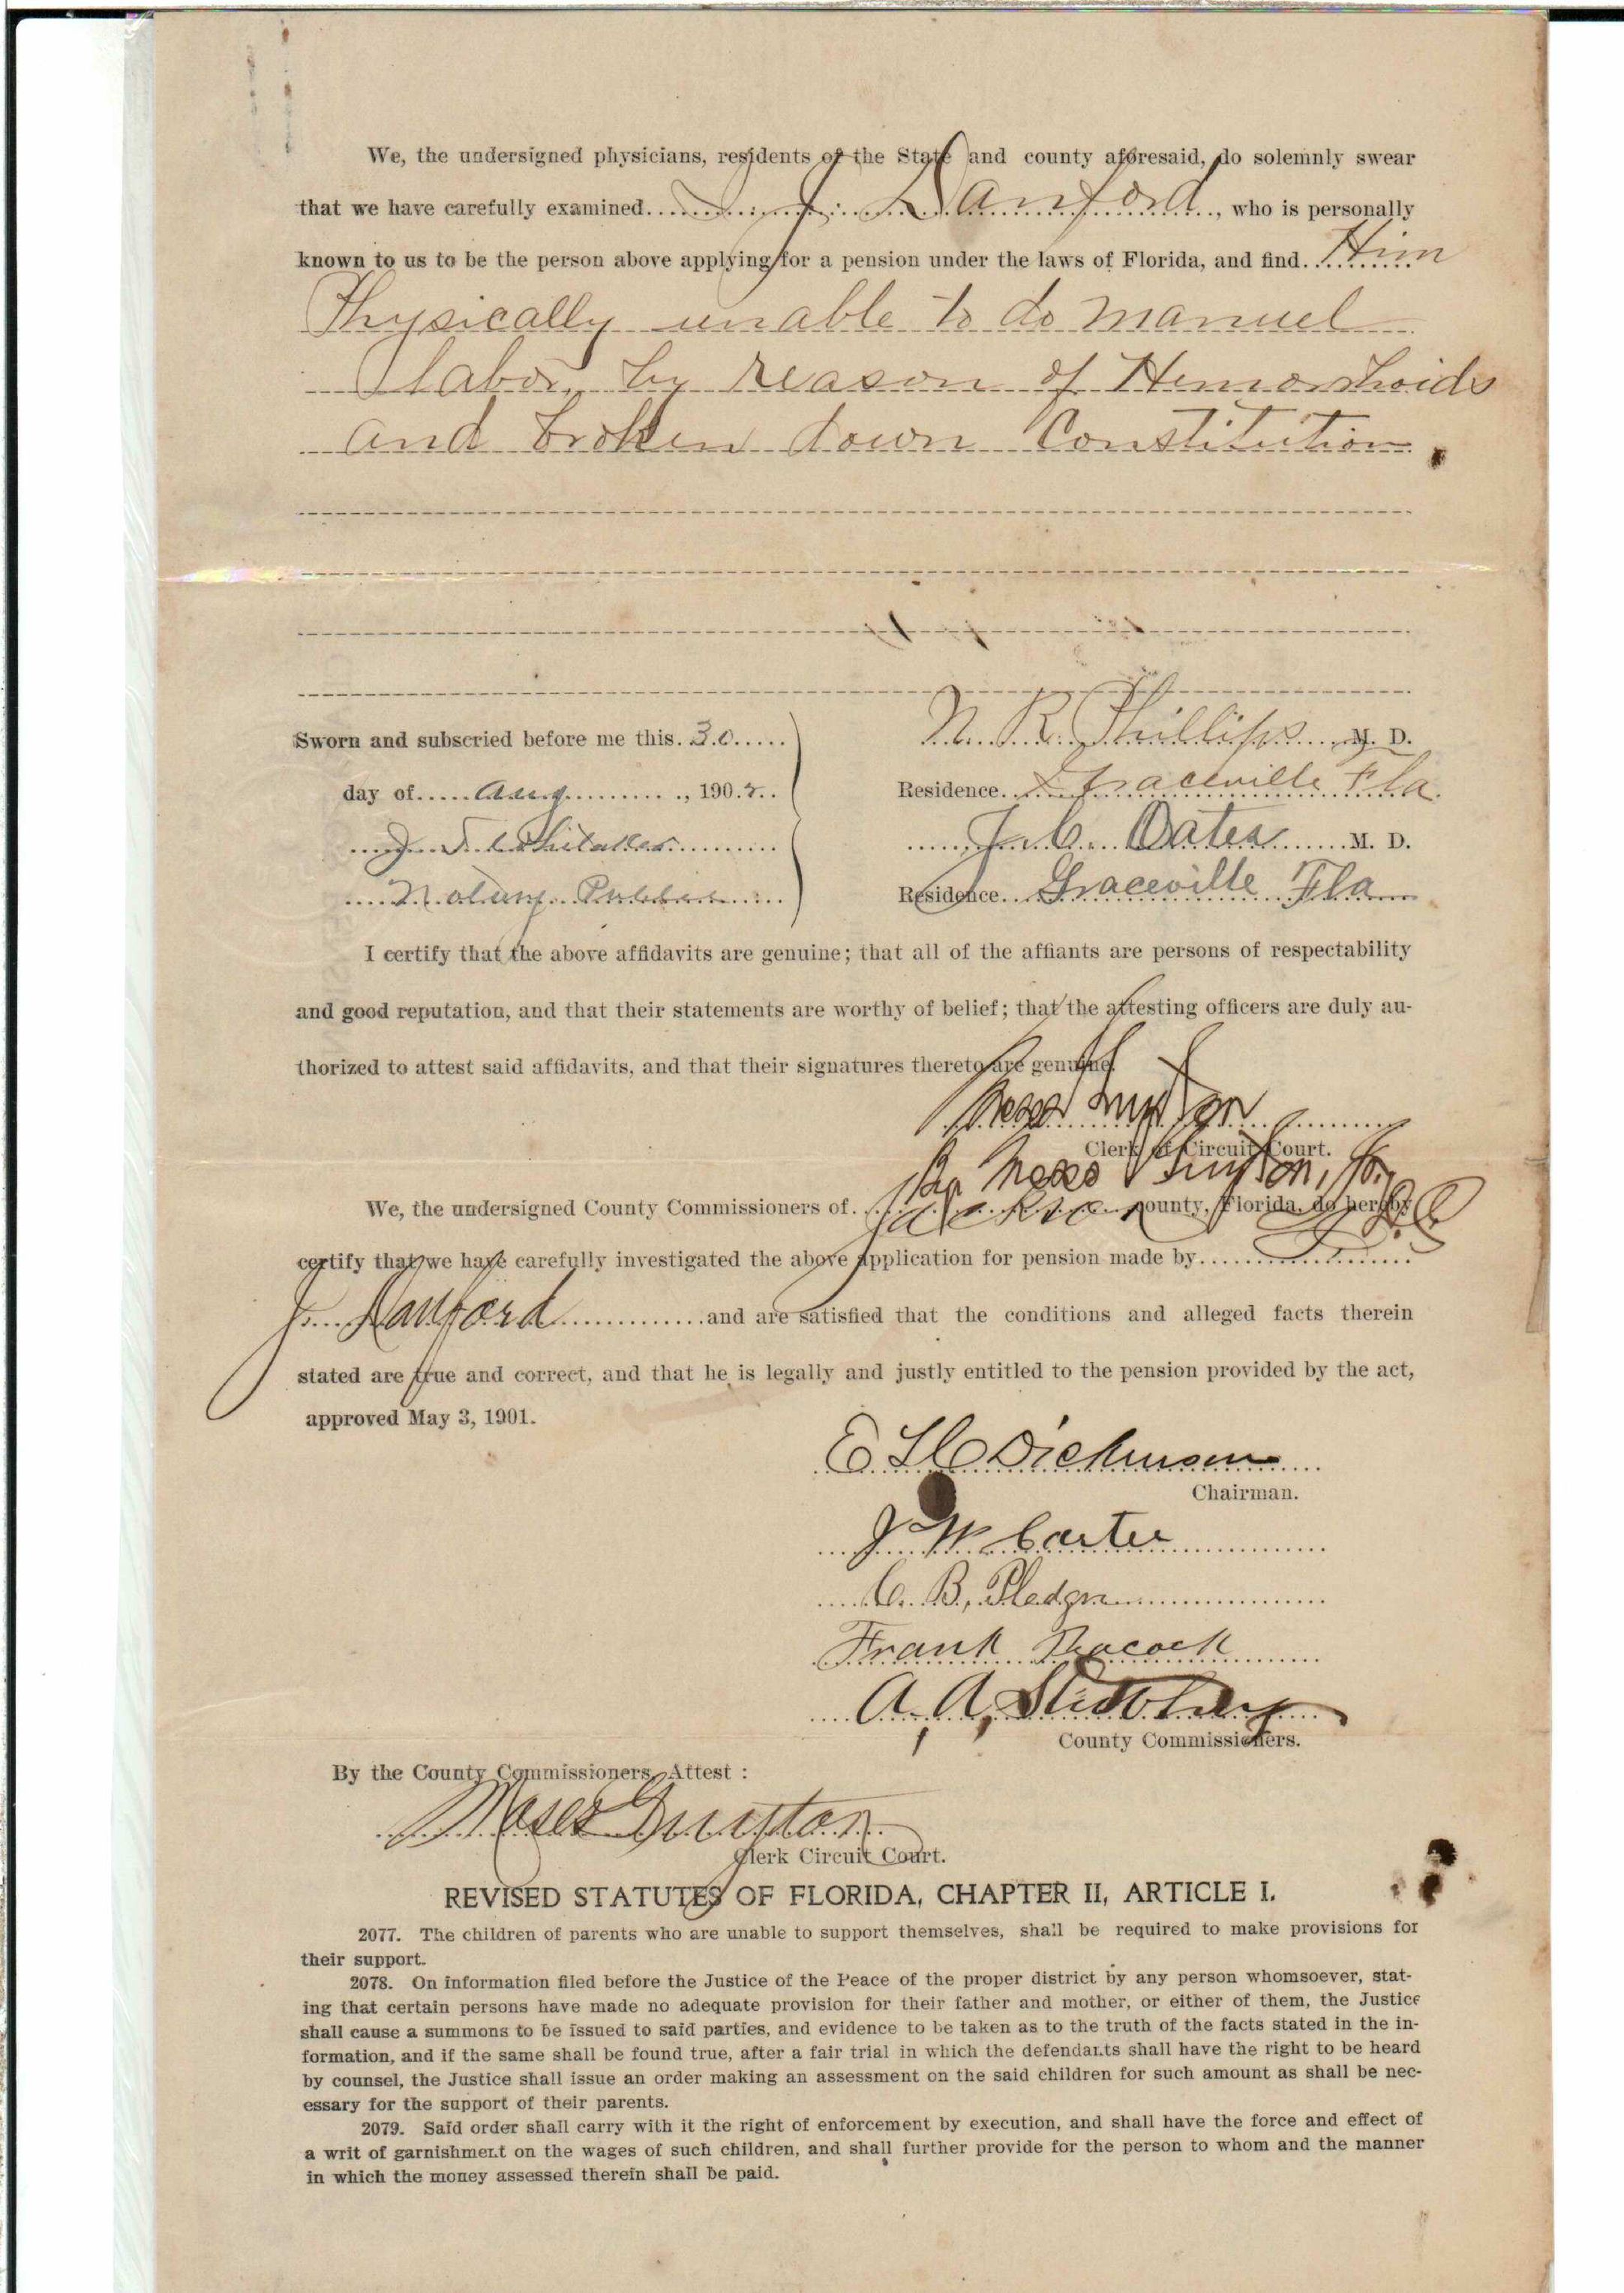 We, the undersigned physicians, residents of the State and county aforesaid, do solemnly swear
that we have carefully examined. J. Danford, who is personally
known to us to be the person above applying for a pension under the laws of Florida, and find. Him
Physically unable to do manuel
labor by reason of Hemorrhoids
and broken down Constitution.
Sworn and subscried before me this. 30
N. R. Phillips, M. D.
day of Aug, 1902
Residence. Graceville Fla.
J. T. Whitaker
J. C. Oates M. D.
Notary Public
Residence. Graceville Fla
I certify that the above affidavits are genuine; that all of the affiants are persons of respectability
and good reputation, and that their statements are worthy of belief; that the attesting officers are duly au-
thorized to attest said affidavits, and that their signatures thereto are genuine.
Moses Guyton
Clerk of Circuit Court.
By Moses Guyton, Jr. D.C.
We, the undersigned County Commissioners of. Jackson county, Florida, do hereby
certify that we have carefully investigated the above application for pension made by
J. Danford and are satisfied that the conditions and alleged facts therein
stated are true and correct, and that he is legally and justly entitled to the pension provided by the act,
approved May 3, 1901.
Dickinson
Chairman.
J W Carter
C. B. Pledger
Frank Peacock
A. A.
County Commissioners.
By the County Commissioners, Attest :
Moses Guyton
Clerk Circuit Court.
REVISED STATUTES OF FLORIDA, CHAPTER II, ARTICLE I.
2077. The children of parents who are unable to support themselves, shall be required to make provisions for
their support.
2078. On information filed before the Justice of the Peace of the proper district by any person whomsoever, stat-
ing that certain persons have made no adequate provision for their father and mother, or either of them, the Justice
shall cause a summons to be issued to said parties, and evidence to be taken as to the truth of the facts stated in the in-
formation, and if the same shall be found true, after a fair trial in which the defendants shall have the right to be heard
by counsel, the Justice shall issue an order making an assessment on the said children for such amount as shall be nec-
essary for the support of their parents.
2079. Said order shall carry with it the right of enforcement by execution, and shall have the force and effect of
a writ of garnishment on the wages of such children, and shall further provide for the person to whom and the manner
in which the money assessed therein shall be paid.